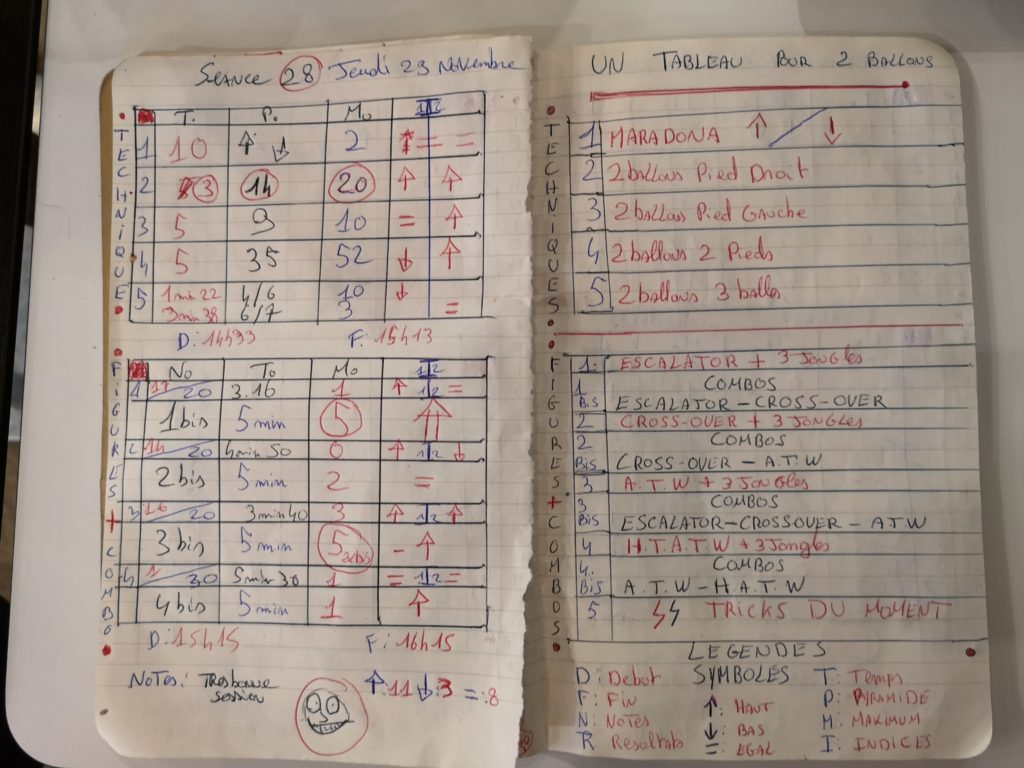 SEANCE 28 Jeudi 23 Novembre
TECHNIQUE
T. P. Mo 1/2
1 10 ↑ ↓ 2 = =
2 3 14 20 ↑ ↑
3 5 9 10 = ↑
4 5 35 52 ↓ ↑
5 1 min 22 4/6 10 ↓
3 min 38 6/7 3 =
D: 14h33 F: 15h13
FIGURES + COMBO
No To Mo 1/2
1 17/20 3.16 1 ↑ 1/2 =
1 bis 5 min 5 ↑
2 14/20 4 min 50 0 ↑ 1/2 ↓
2 bis 5 min 2 =
3 16/20 3 min 40 3 ↑ 1/2 ↑
3 bis 5 min 5 - ↑
4 1/30 5 min 30 1 = 1/2 =
4 bis 5 min 1 ↑
D: 15h15 F: 16h15
NOTES: Tres bonne
session
↑:11 ↓:3 =:8
UN TABLEAU POUR 2 BALLONS
TECHNIQUES
1 MARADONA ↑ / ↓
2 2 ballons Pied Droit
3 2 ballons Pied Gauche
4 2 ballons 2 Pieds
5 2 ballons 3 balles
FIGURES + COMBOS
1. ESCALATOR + 3 Jongles
1 COMBOS
BIS ESCALATOR-CROSS-OVER
2 CROSS-OVER + 3 JONGLES
2 COMBOS
BIS CROSS-OVER - A.T.W
3 A.T.W + 3 JONGLES
3 COMBOS
BIS ESCALATOR-CROSSOVER - ATW
4 H.T.A.T.W + 3 Jongles
4. COMBOS
BIS A.T.W - H.A.T.W
5 TRICKS DU MOMENT
LEGENDES
D: Debut SYMBOLES T: Temps
F: Fin ↑: HAUT P: PYRAMIDE
N: NOTES ↓: BAS M: MAXIMUM
R Resultats =: EGAL I: INDICES